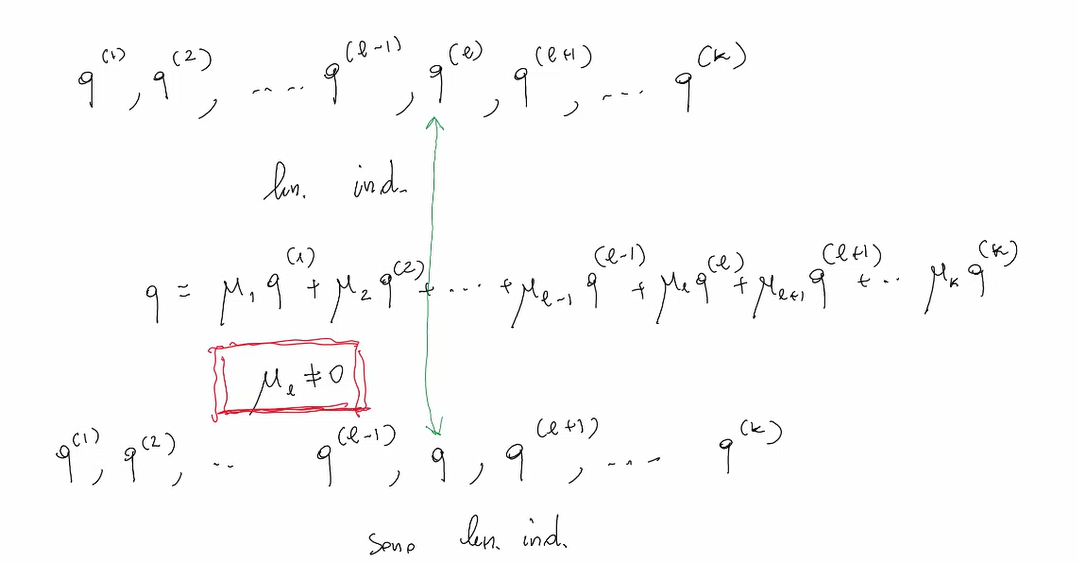 q^(1), q^(2), .... q^(ℓ-1), q^(ℓ), q^(ℓ+1), ... q^(k)
lin. ind.
q = μ₁ q^(1) + μ₂ q^(2) + ... + μ_ℓ-1 q^(ℓ-1) + μ_ℓ q^(ℓ) + μ_ℓ+1 q^(ℓ+1) + .. μ_k q^(k)
μ_ℓ ≠ 0
q^(1), q^(2), .. q^(ℓ-1), q, q^(ℓ+1), .... q^(k)
sono lin. ind.